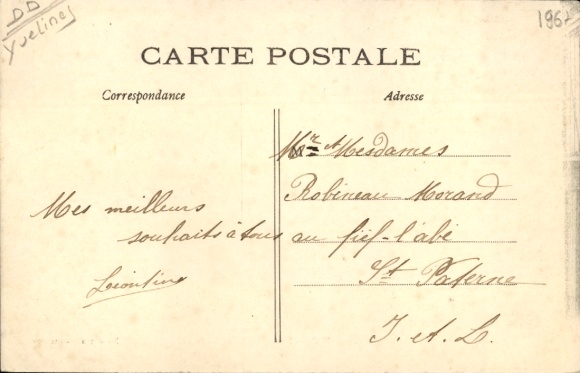 DD
Yvelines
CARTE POSTALE
Correspondance
Adresse
Mes meilleurs
souhaits à tous
Léontine
Mr et Mesdames
Robineau Morand
au fief-l'abé
St Paterne
I. et. L.